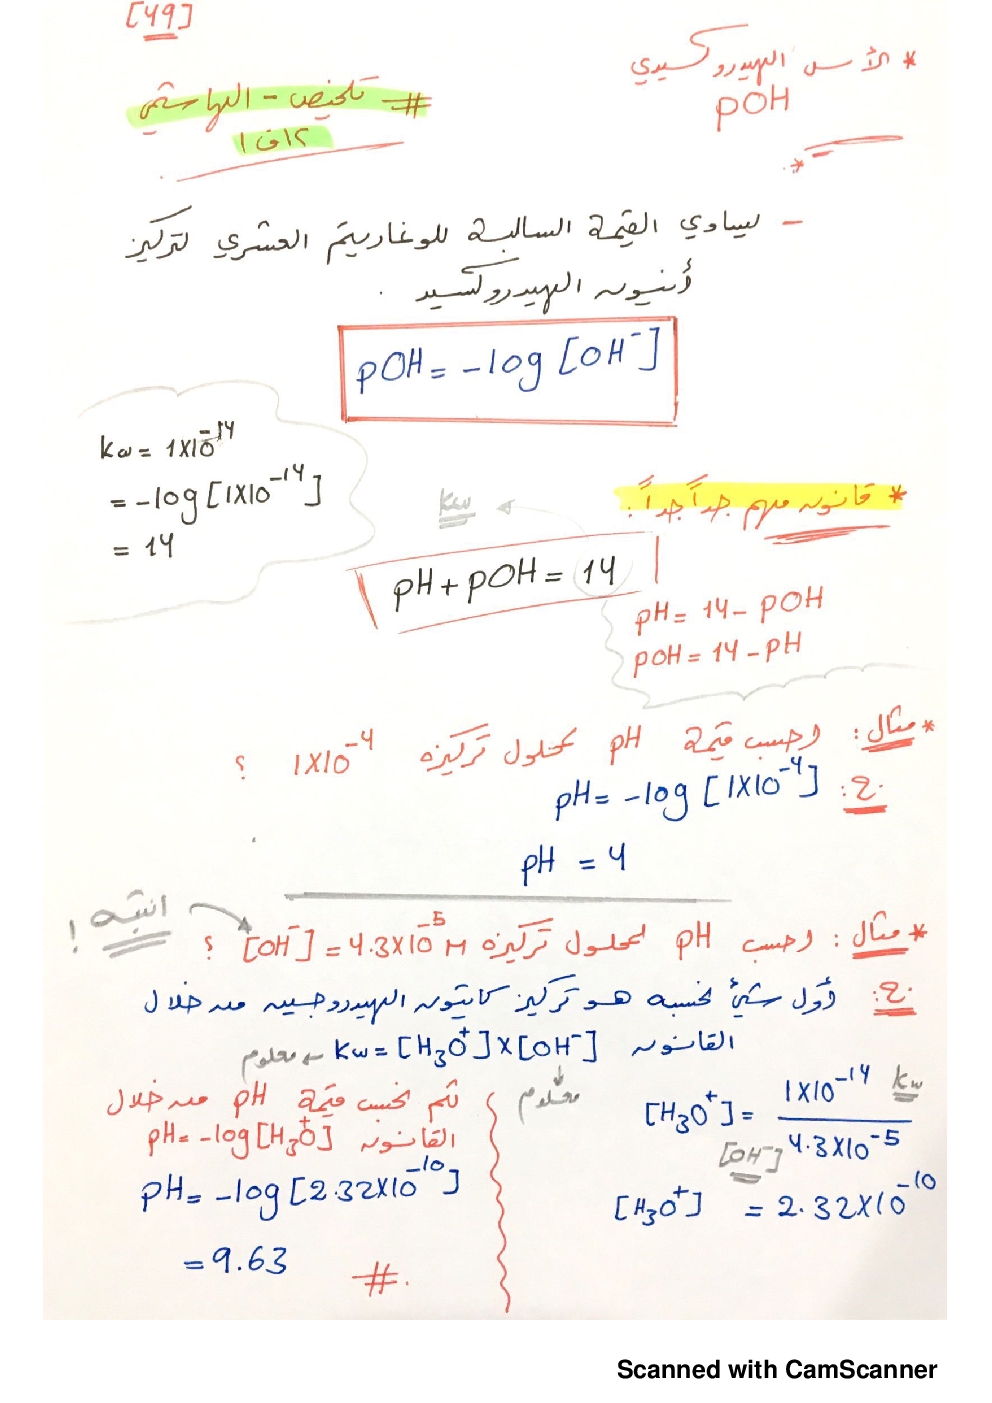 [49]
* الأس الهيدروكسيدي
pOH
# تلخيص - الهاشمي
ك٢ ف١
- يساوي القيمة السالبة للوغاريتم العشري لتركيز
أنيون الهيدروكسيد .
pOH = -log [OH⁻]
kw = 1x10⁻¹⁴
= -log [1x10⁻¹⁴]
= 14
* قانون مهم جداً جداً :
kw
pH + pOH = 14
pH = 14 - pOH
pOH = 14 - pH
* مثال : احسب قيمة pH لمحلول تركيزه 1x10⁻⁴ ؟
ج: pH = -log [1x10⁻⁴]
pH = 4
انتبه !
* مثال : احسب pH لمحلول تركيزه [OH⁻] = 4.3x10⁻⁵ M ؟
ج: أول شئ نحسبه هو تركيز كاتيون الهيدروجين من خلال
القانون kw = [H₃O⁺] x [OH⁻] ← معلوم
معلوم
[H₃O⁺] = 1x10⁻¹⁴ kw
4.3x10⁻⁵ [OH⁻]
[H₃O⁺] = 2.32x10⁻¹⁰
ثم نحسب قيمة pH من خلال
القانون pH = -log [H₃O⁺]
pH = -log [2.32x10⁻¹⁰]
= 9.63
#.
Scanned with CamScanner